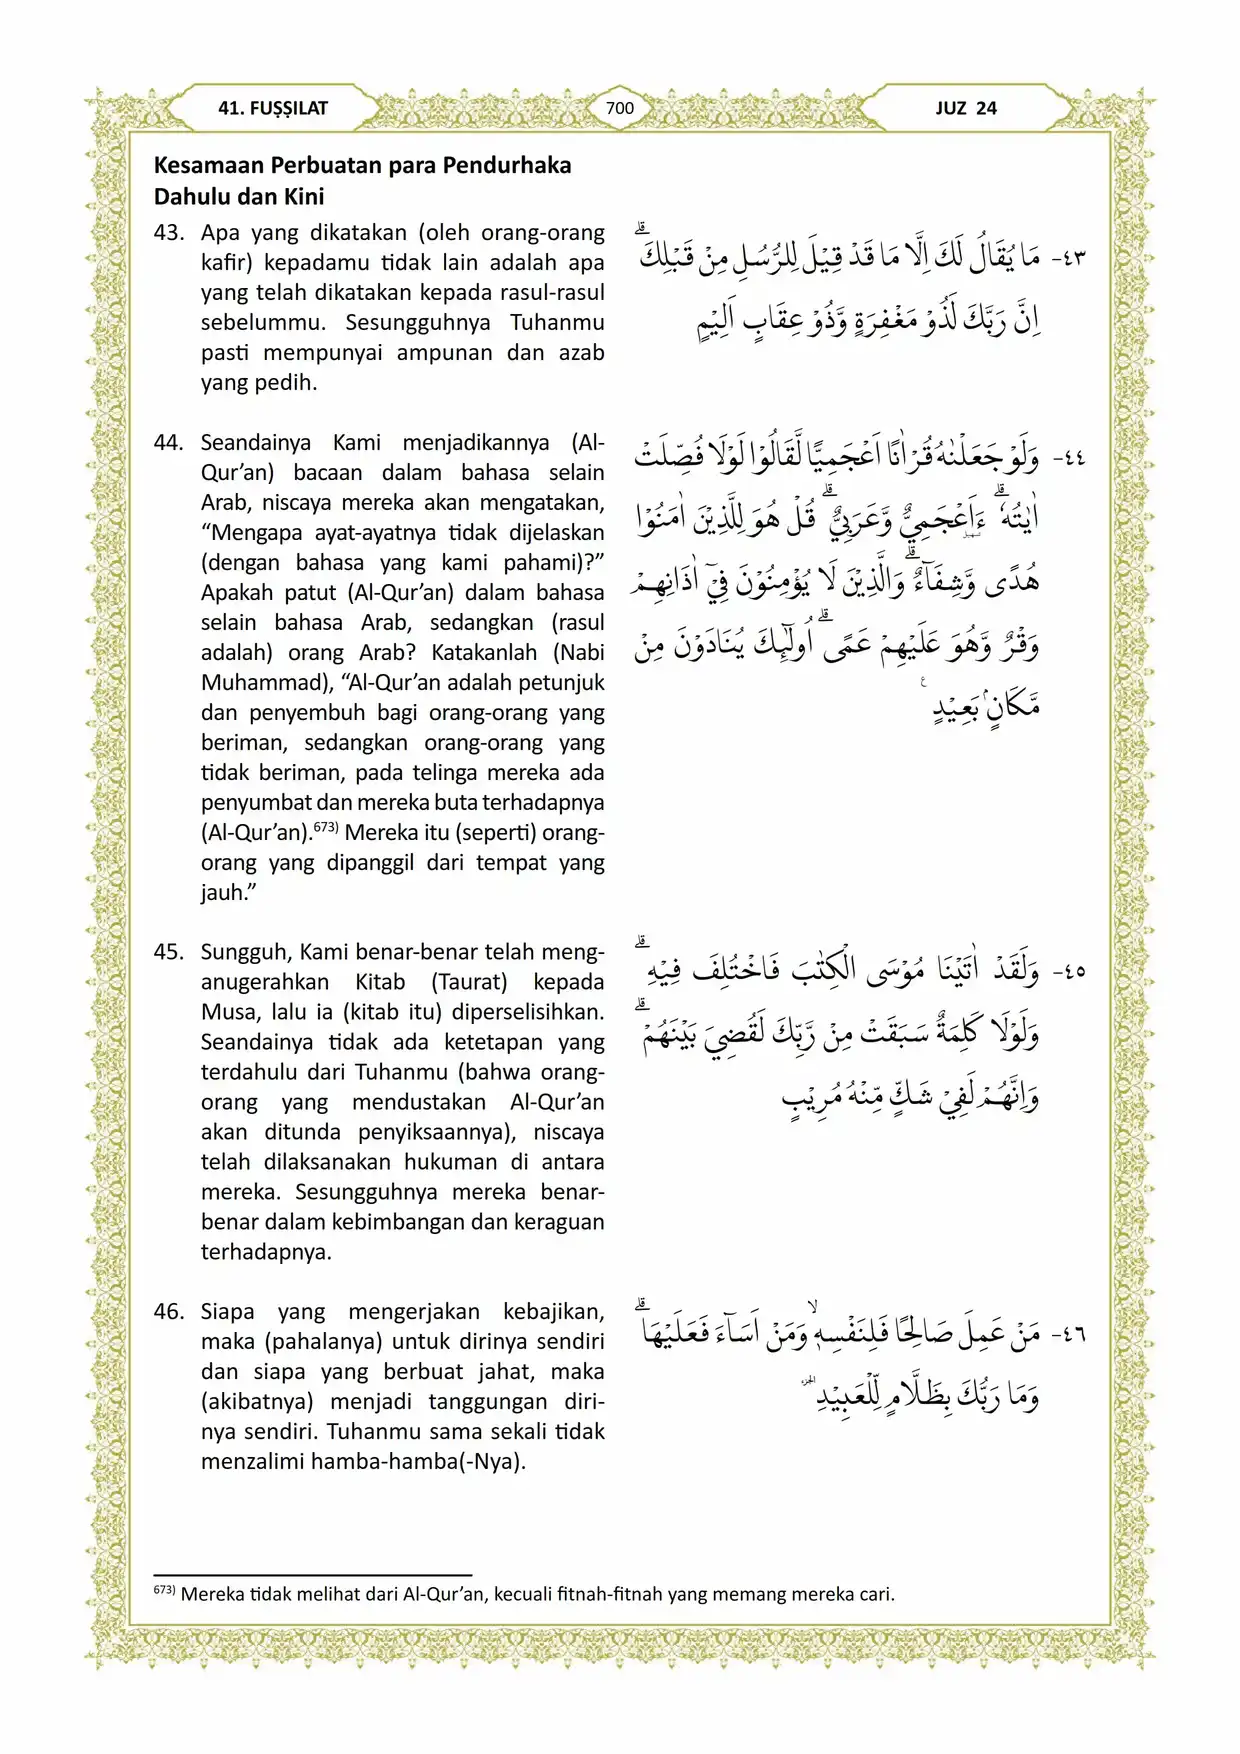 41. FUṢṢILAT
700
JUZ 24
Kesamaan Perbuatan para Pendurhaka
Dahulu dan Kini
43. Apa yang dikatakan (oleh orang-orang
kafir) kepadamu tidak lain adalah apa
yang telah dikatakan kepada rasul-rasul
sebelummu. Sesungguhnya Tuhanmu
pasti mempunyai ampunan dan azab
yang pedih.
٤٣- مَا يُقَالُ لَكَ اِلَّا مَا قَدْ قِيْلَ لِلرُّسُلِ مِنْ قَبْلِكَ ۗ
اِنَّ رَبَّكَ لَذُوْ مَغْفِرَةٍ وَّذُوْ عِقَابٍ اَلِيْمٍ
44. Seandainya Kami menjadikannya (Al-
Qur’an) bacaan dalam bahasa selain
Arab, niscaya mereka akan mengatakan,
“Mengapa ayat-ayatnya tidak dijelaskan
(dengan bahasa yang kami pahami)?”
Apakah patut (Al-Qur’an) dalam bahasa
selain bahasa Arab, sedangkan (rasul
adalah) orang Arab? Katakanlah (Nabi
Muhammad), “Al-Qur’an adalah petunjuk
dan penyembuh bagi orang-orang yang
beriman, sedangkan orang-orang yang
tidak beriman, pada telinga mereka ada
penyumbat dan mereka buta terhadapnya
(Al-Qur’an).673) Mereka itu (seperti) orang-
orang yang dipanggil dari tempat yang
jauh.”
٤٤- وَلَوْ جَعَلْنٰهُ قُرْاٰنًا اَعْجَمِيًّا لَّقَالُوْا لَوْلَا فُصِّلَتْ
اٰيٰتُهٗ ۗ ءَاَ۬عْجَمِيٌّ وَّعَرَبِيٌّ ۗ قُلْ هُوَ لِلَّذِيْنَ اٰمَنُوْا
هُدًى وَّشِفَاۤءٌ ۗ وَالَّذِيْنَ لَا يُؤْمِنُوْنَ فِيْٓ اٰذَانِهِمْ
وَقْرٌ وَّهُوَ عَلَيْهِمْ عَمًى ۗ اُولٰۤىِٕكَ يُنَادَوْنَ مِنْ
مَّكَانٍۢ بَعِيْدٍ ࣖ
45. Sungguh, Kami benar-benar telah meng-
anugerahkan Kitab (Taurat) kepada
Musa, lalu ia (kitab itu) diperselisihkan.
Seandainya tidak ada ketetapan yang
terdahulu dari Tuhanmu (bahwa orang-
orang yang mendustakan Al-Qur’an
akan ditunda penyiksaannya), niscaya
telah dilaksanakan hukuman di antara
mereka. Sesungguhnya mereka benar-
benar dalam kebimbangan dan keraguan
terhadapnya.
٤٥- وَلَقَدْ اٰتَيْنَا مُوْسَى الْكِتٰبَ فَاخْتُلِفَ فِيْهِ ۗ
وَلَوْلَا كَلِمَةٌ سَبَقَتْ مِنْ رَّبِّكَ لَقُضِيَ بَيْنَهُمْ ۗ
وَاِنَّهُمْ لَفِيْ شَكٍّ مِّنْهُ مُرِيْبٍ
46. Siapa yang mengerjakan kebajikan,
maka (pahalanya) untuk dirinya sendiri
dan siapa yang berbuat jahat, maka
(akibatnya) menjadi tanggungan diri-
nya sendiri. Tuhanmu sama sekali tidak
menzalimi hamba-hamba(-Nya).
٤٦- مَنْ عَمِلَ صَالِحًا فَلِنَفْسِهٖ ۙوَمَنْ اَسَاۤءَ فَعَلَيْهَا ۗ
وَمَا رَبُّكَ بِظَلَّامٍ لِّلْعَبِيْدِ ۔
673) Mereka tidak melihat dari Al-Qur’an, kecuali fitnah-fitnah yang memang mereka cari.